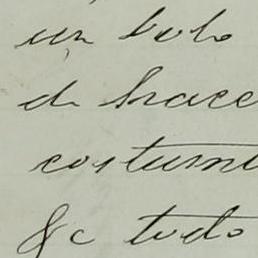 un solo
de hace
costum
&c todo